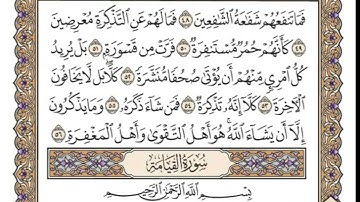 فَمَا تَنفَعُهُمْ شَفَاعَةُ الشَّافِعِينَ ٤٨ فَمَا لَهُمْ عَنِ التَّذْكِرَةِ مُعْرِضِينَ
٤٩ كَأَنَّهُمْ حُمُرٌ مُّسْتَنفِرَةٌ ٥٠ فَرَّتْ مِن قَسْوَرَةٍ ٥١ بَلْ يُرِيدُ
كُلُّ امْرِئٍ مِّنْهُمْ أَن يُؤْتَىٰ صُحُفًا مُّنَشَّرَةً ٥٢ كَلَّا بَل لَّا يَخَافُونَ
الْآخِرَةَ ٥٣ كَلَّا إِنَّهُ تَذْكِرَةٌ ٥٤ فَمَن شَاءَ ذَكَرَهُ ٥٥ وَمَا يَذْكُرُونَ
إِلَّا أَن يَشَاءَ اللَّهُ هُوَ أَهْلُ التَّقْوَىٰ وَأَهْلُ الْمَغْفِرَةِ ٥٦
سُورَةُ الْقِيَامَةِ
بِسْمِ اللَّهِ الرَّحْمَٰنِ الرَّحِيمِ